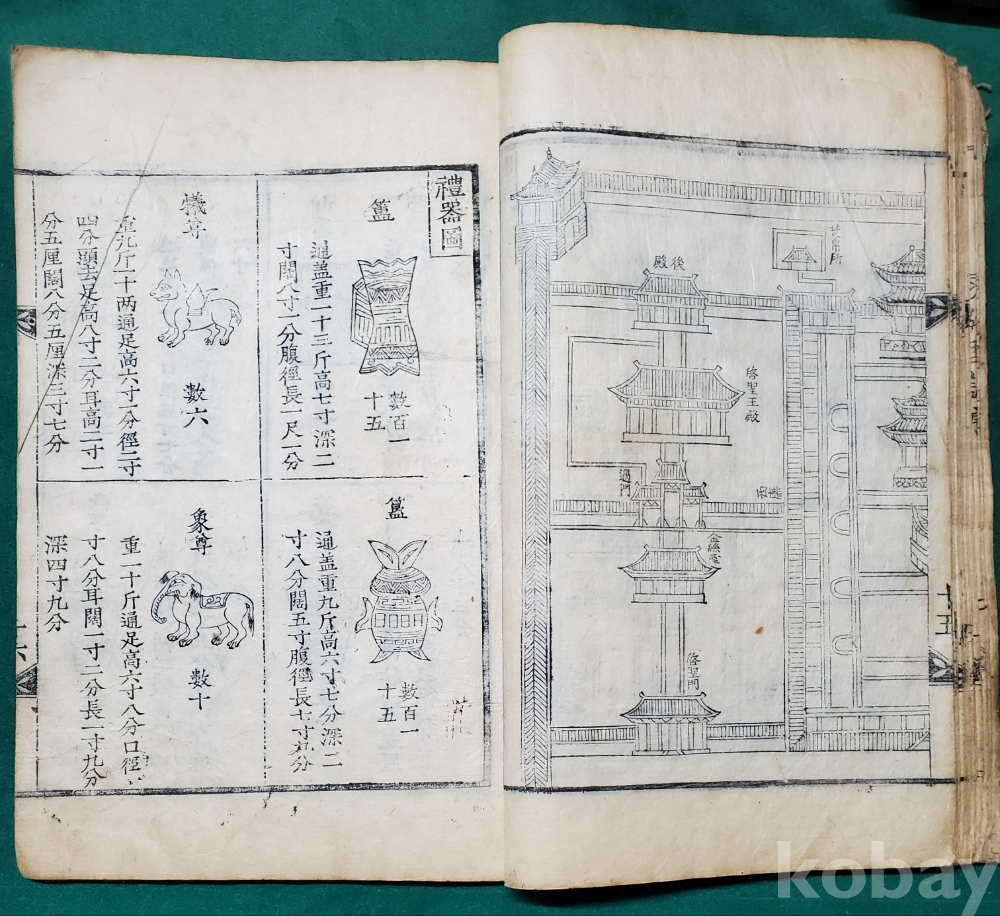 後殿
啓聖王殿
金絲堂
啓聖門
十五
禮器圖
簠
數百一
十五
通盖重一十三斤高七寸深二
寸闊八寸一分腹徑長一尺一分
簋
數百一
十五
通盖重九斤高六寸七分深二
寸八分闊五寸腹徑長七寸九分
犧尊
數六
重九斤一十两通足高六寸一分徑二寸
四分頭去足高八寸二分耳高二寸一
分五厘闊八分五厘深三寸七分
象尊
數十
重一十斤通足高六寸八分口徑一
寸八分耳闊一寸二分長一寸九分
深四寸九分
十六
kobay